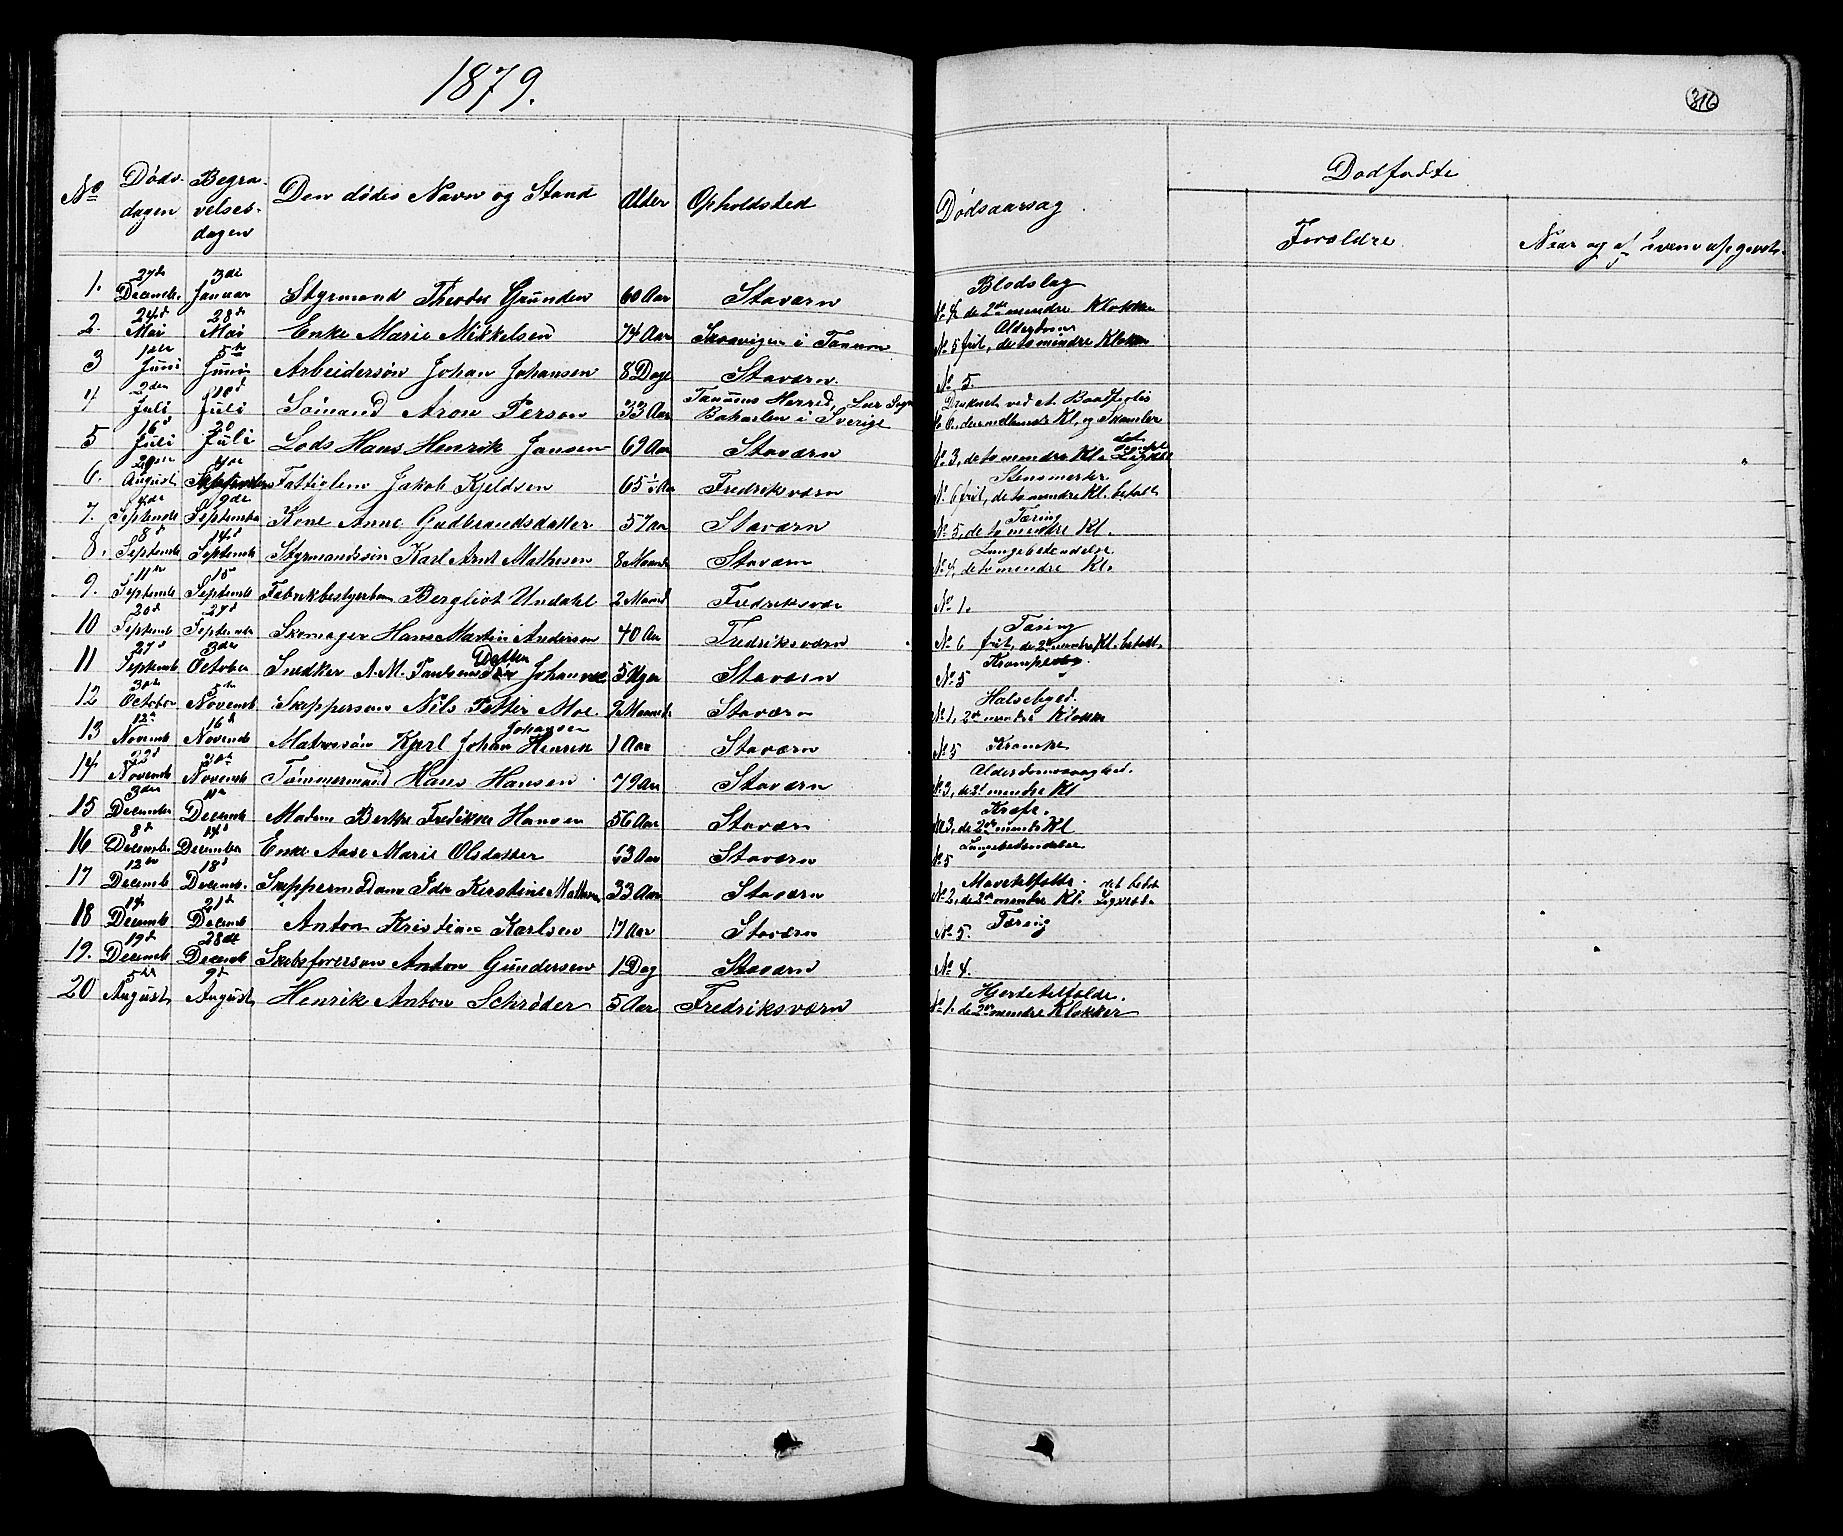 1879.
316
No Dødsdagen Begravelsesdagen Den dødes Navn og Stand Alder Opholdsted Dødsaarsag Dødfødte
Forældre Naar og af hvem opgivet
1. 27de Decemb. 3die Januar Styrmand Theodor Gunden 60 Aar Staværn Blodslag No 4 de 2de mindre Klokker
2. 24d Mai 28d Mai Enke Marie Mikkelsen 74 Aar i Tanum Alderdom No 5 frit, de to mindre Klokker
3 1ste Juni 5te Juni Arbeidersøn Johan Johansen 8 Dage Staværn. No 5.
4 2den Juli 10d Juli Sømand Aron Person 33 Aar Tanums Herred, Bahuslen i Sverige Druknet ved et Baadforlis No 6, Kl. og
5 16d Juli 20 Juli Lods Hans Henrik Jansen 69 Aar Staværn No 3, de to mindre Kl.
6. 29de August 4de September Fattiglem Jakob Kjeldsen 65½ Aar Fredriksværn No 6 frit, de to mindre Kl. betalt
7. 4de Septemb 9de Septemb Kone Anne Gudbrandsdatter 57 Aar Staværn Tæring No 5, de to mindre Kl.
8. 8d Septemb 14d Septemb Styrmandssøn Karl Arnt Mathesen 8 Maaned Staværn Lungebetændelse No 4, de to mindre Kl.
9. 11te Septemb 15 Septemb Fabrikbestyrerbarn Bergliot Undahl 2 Maaned Fredriksvær No 1.
10 20d Septemb 27d Septemb Skomager Hans Martin Andersen 40 Aar Fredriksværn Tæring No 6 frit, de 2de mindre Kl. betalt
11 27d Septemb 3die October Snedker A. M. Paulsens Datter Johanne 5 Uger Staværn Krampe No 5
12 30te October 5te Novemb Skippersøn Nils Petter Moe 9 Maaned Staværn Halsebyld. No 1, 2de mindre Klokker
13 12te Novemb 16d Novemb Matrossøn Karl Johan Henrik Johansen 1 Aar Staværn No 5 Krampe
14 22d Novemb Novemb Tømmermand Hans Hansen 79 Aar Staværn Alderdomssvaghed. No 3, de 2d mindre Kl
15 3die December 11te Decemb Madam Berthe Fredrikke Hansen 56 Aar Staværn Kræft. No 3, de 2de mindre Kl
16 8d Decemb. 14d December Enke Aase Marie Olsdatter 63 Aar Staværn Lungebetændelse No 5
17 12te Decemb 18d Decemb. Skippermadame Ida Kirstine Mathesen 33 Aar Staværn Mavetilfælde. No 2, de 2de mindre Kl.
18 14 Decemb 21d Decemb Anton Kristian Karlsen 17 Aar Staværn No 5. Tæring
19. 19d Decemb 28de Decemb Skibsførersøn Anton Gundersen 1 Dag Staværn No 4.
20 5te August 9d August Henrik Anton Schrøder 5 Aar Fredriksværn Hjertetilfælde. No 1. de 2de mindre Klokker